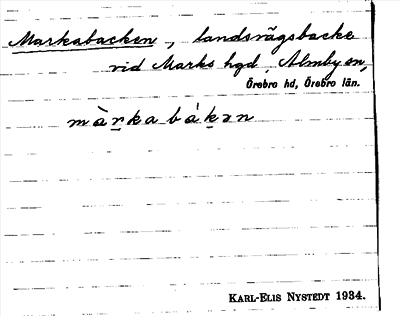 Markabacken, landsvägsbacke
vid Marks hgd, Almby sn,
Örebro hd, Örebro län.
màrka bákən
KARL-ELIS NYSTEDT 1934.